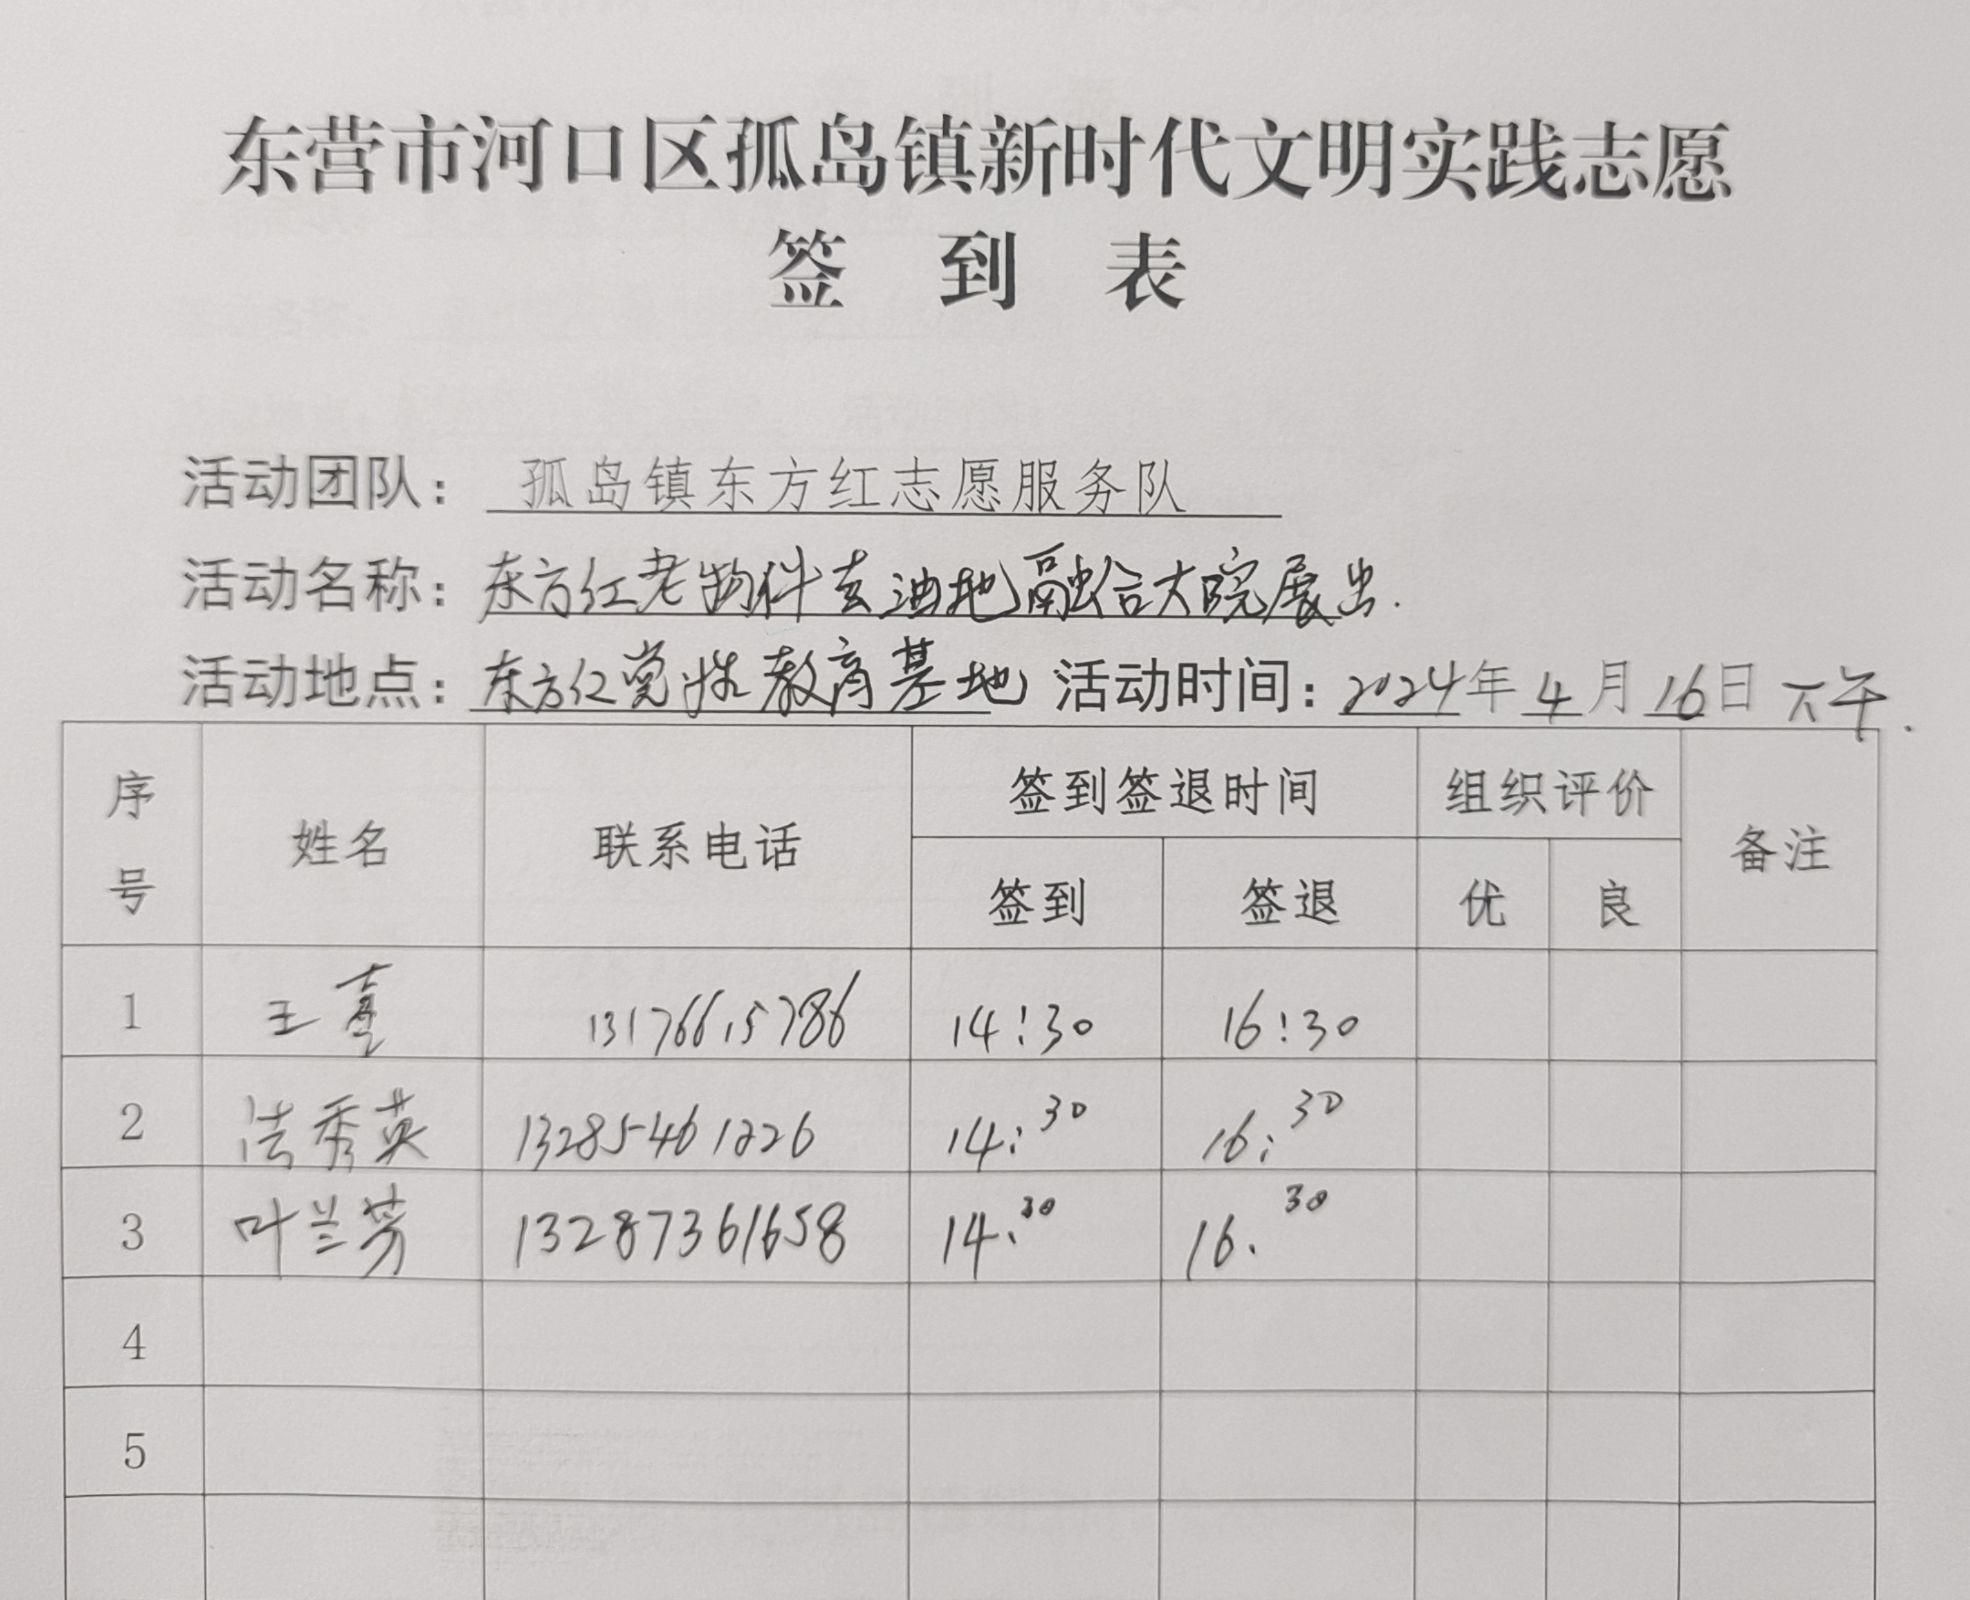 东营市河口区孤岛镇新时代文明实践志愿
签 到 表
活动团队：孤岛镇东方红志愿服务队
活动名称：东方红老物件去油地融合大院展出.
活动地点：东方红党性教育基地 活动时间：2024年4月16日下午.
序号 姓名 联系电话 签到签退时间 组织评价 备注
签到 签退 优 良
1 王 13176615786 14:30 16:30
2 法秀英 13285461226 14:30 16:30
3 叶兰芳 13287361658 14.30 16.30
4
5